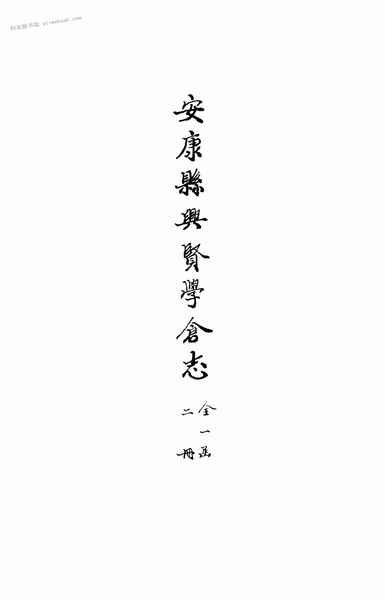 安康縣興賢學倉志
全一函
二冊